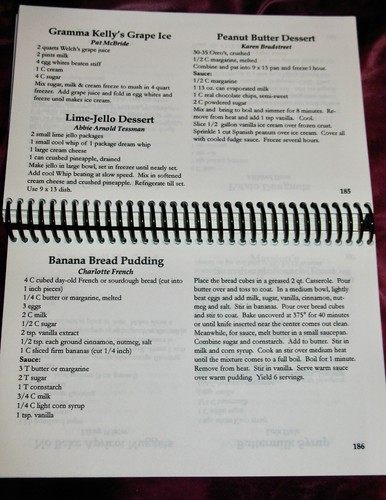 Gramma Kelly's Grape Ice
Pat McBride
2 quarts Welch's grape juice
2 pints milk
4 egg whites beaten stiff
1 C cream
4 C sugar
Mix sugar, milk & cream freeze to mush in 4 quart
freezer. Add grape juice and fold in egg whites and
freeze until makes ice cream.
Lime-Jello Dessert
Abbie Arnold Tessman
2 small lime jello packages
1 small cool whip of 1 package dream whip
1 large cream cheese
1 can crushed pineapple, drained
Make jello in large bowl, set in freezer until nearly set.
Add cool Whip beating at slow speed. Mix in softened
cream cheese and crushed pineapple. Refrigerate till set.
Use 9 x 13 dish.
Peanut Butter Dessert
Karen Bradstreet
30-35 Oreo's, crushed
1/2 C margarine, melted
Combine and pat into 9 x 13 pan and freeze 1 hour.
Sauce:
1/2 C margarine
1 13 oz. can evaporated milk
1 C real chocolate chips, semi-sweet
2 C powdered sugar
Mix and bring to boil and simmer for 8 minutes. Re-
move from heat and add 1 tsp vanilla. Cool.
Slice 1/2 gallon vanilla ice cream over frozen crust.
Sprinkle 1 cut Spanish peanuts over ice cream. Cover all
with cooled fudge sauce. Freeze several hours.
185
Banana Bread Pudding
Charlotte French
4 C cubed day-old French or sourdough bread (cut into
1 inch pieces)
1/4 C butter or margarine, melted
3 eggs
2 C milk
1/2 C sugar
2 tsp. vanilla extract
1/2 tsp. each ground cinnamon, nutmeg, salt
1 C sliced firm bananas (cut 1/4 inch)
Sauce:
3 T butter or margarine
2 T sugar
1 T cornstarch
3/4 C milk
1/4 C light corn syrup
1 tsp. vanilla
Place the bread cubes in a greased 2 qt. Casserole. Pour
butter over and toss to coat. In a medium bowl, lightly
beat eggs and add milk, sugar, vanilla, cinnamon, nut-
meg and salt. Stir in bananas. Pour over bread cubes
and stir to coat. Bake uncovered at 375° for 40 minutes
or until knife inserted near the center comes out clean.
Meanwhile, for sauce, melt butter in a small saucepan.
Combine sugar and cornstarch. Add to butter. Stir in
milk and corn syrup. Cook an stir over medium heat
until the mixture comes to a full boil. Boil for 1 minute.
Remove from heat. Stir in vanilla. Serve warm sauce
over warm pudding. Yield 6 servings.
186